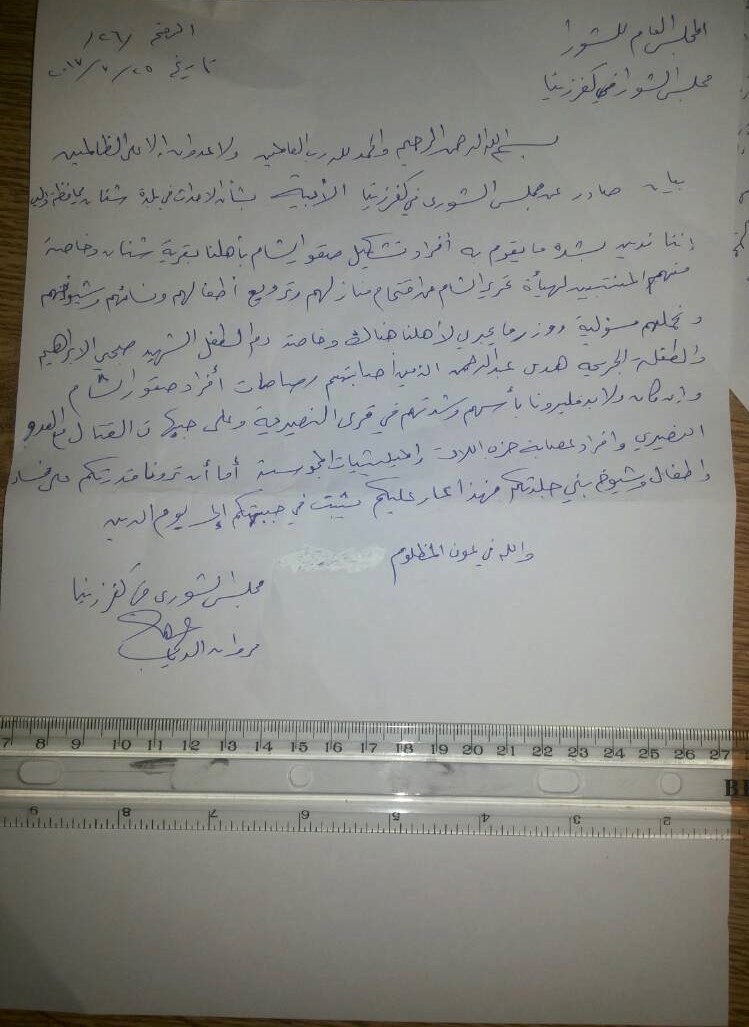 المجلس العام للشورا
مجلس الشورا في كفرزيتا
الرقم /٢٦/
تاريخ ٢٠١٧/٧/٢٥
بسم الله الرحمن الرحيم والحمد لله رب العالمين ولا عدوان إلا على الظالمين
بيان صادر عن مجلس الشورى في كفرزيتا الأبية بشأن الأحداث في بلدة شنان بمحافظة إدلب
إننا ندين بشدة ما يقوم به أفراد تشكيل صقور الشام بأهلنا بقرية شنان وخاصة
منهم المنتسبين لهيأة تحرير الشام من اقتحام منازلهم وترويع أطفالهم ونسائهم وشيوخهم
ونحملهم مسؤلية ووزر ما يجري لأهلنا هناك وخاصة دم الطفل الشهيد صبحي الابراهيم
والطفلة الجريحة هدى عبد الرحمن الذين أصابتهم رصاصات أفراد صقور الشام
وإن كان ولا بد فليرونا بأسهم وشدتهم في قرى النصيرية وعلى جبهات القتال مع العدو
النصيري وافراد عصابة حزب اللات والميليشيات المجوسية أما أن ترونا قدرتكم على نساء
واطفال وشيوخ بني جلدتكم فهذا عار عليكم يثبت في جبهتكم إلى يوم الدين
والله في عون المظلوم
مجلس الشورى في كفرزيتا
مروان
7 8 9 10 11 12 13 14 15 16 17 18 19 20 21 22 23 24 25 26 27
9 8 7 6 5 4 3 2